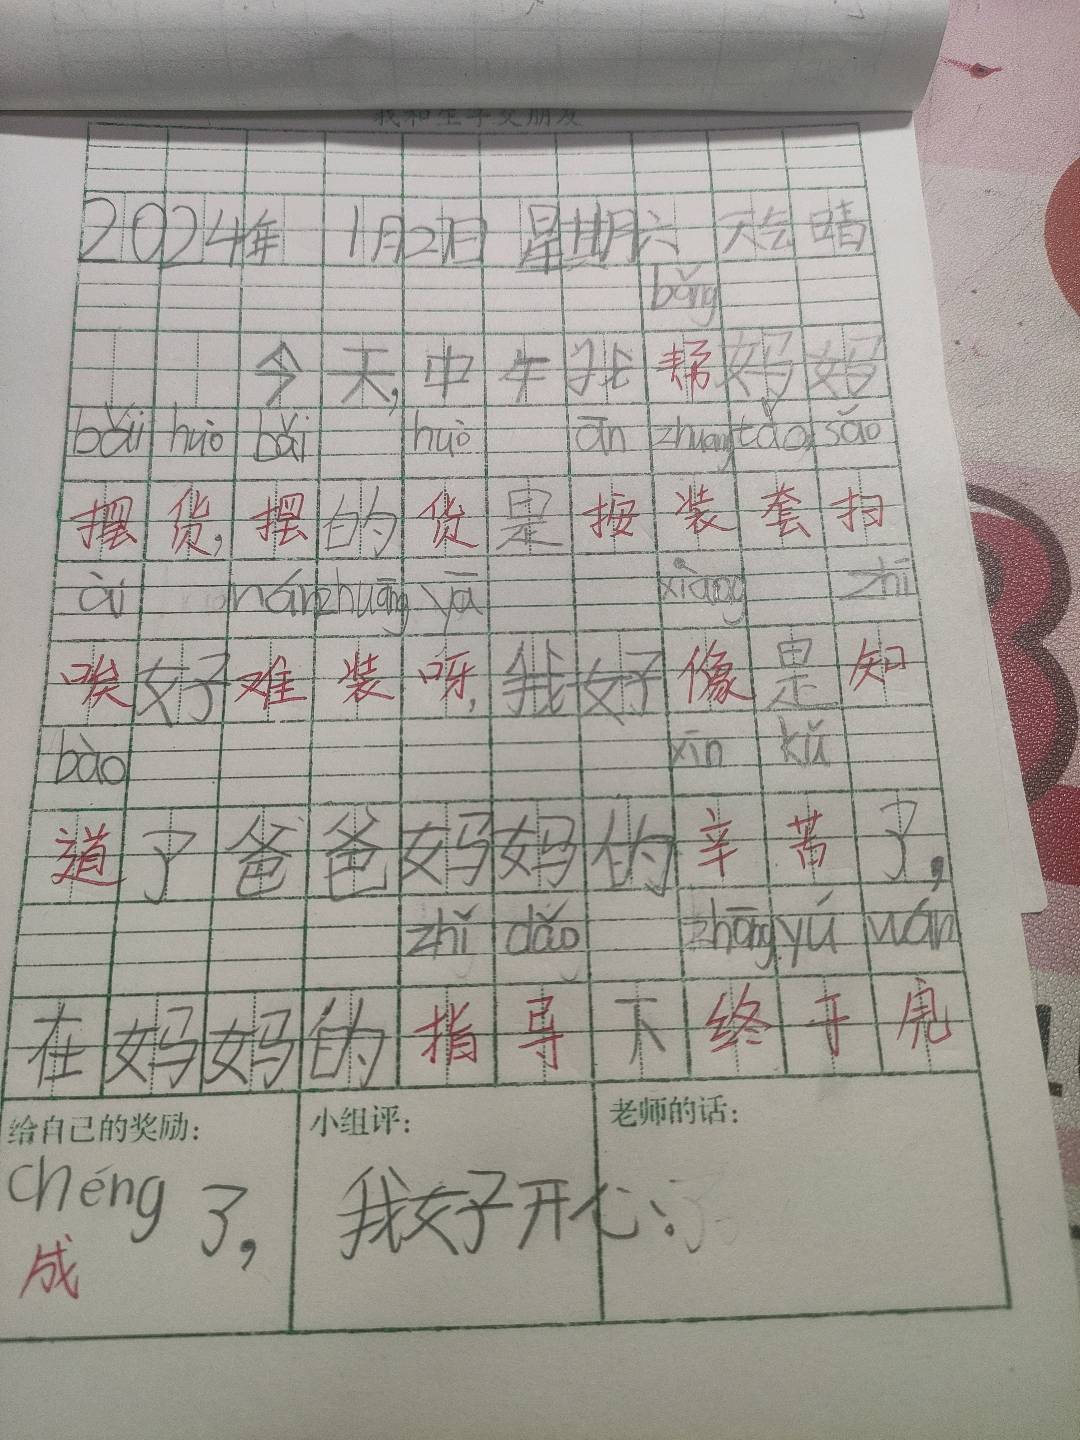 我和生字交朋友
2024年 1月2日 星期六 天气晴
bāng
今天,中午我帮妈妈
bǎi huò bǎi huò ān zhuang tào sǎo
摆货,摆的货是按装套扫
ài nán zhuāng yā xiàng zhī
唉好难装呀,我好像是知
dào xīn kǔ
道了爸爸妈妈的辛苦了,
zhǐ dǎo zhōng yú wán
在妈妈的指导下终于完
给自己的奖励: 小组评: 老师的话:
chéng 了, 我好开心
成